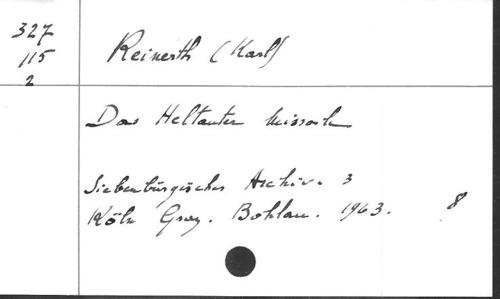 327
115
2
Reinerth (Karl)
Das Heltauer Missale
Siebenbürgisches Archiv. 3
Köln Graz. Böhlau. 1963. 8